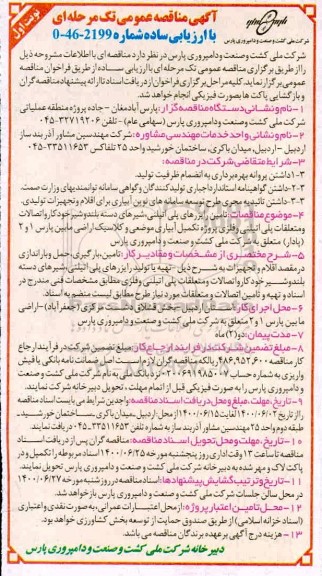 نوبت اول
آگهی مناقصه عمومی تک مرحله ای
با ارزیابی ساده شماره 2199-46-0
شرکت ملی کشت و صنعت و دامپروری پارس
شرکت ملی کشت وصنعت ودامپروری پارس در نظر دارد مناقصه ای با اطلاعات مشروحه ذیل
را از طریق برگزاری مناقصه عمومی تک مرحله ای با ارزیابی ساده از طریق فراخوان مناقصه
عمومی برگزار نماید. کلیه مراحل برگزاری فراخوان از دریافت اسناد تا ارائه پیشنهاد مناقصه گران
و بازگشایی پاکت ها بصورت فیزیکی انجام خواهد شد.
۱-نام ونشانی دستگاه مناقصه گزار: پارس آبادمغان - جاده پروژه منطقه عملیاتی
شرکت ملی کشت و صنعت و دامپروری پارس (سهامی عام) - تلفن ۳۲۷۱۹۲۰۶-۰۴۵
۲-نام ونشانی واحد خدمات مهندسی مشاوره: شرکت مهندسین مشاور آذر بند ساز
اردبیل - اردبیل، میدان باکری، ساختمان خورشید واحد ۲۵ تلفاکس ۳۳۵۱۱۶۵۳-۰۴۵
۳-شرایط متقاضی شرکت در مناقصه:
۱-۳ داشتن پروانه بهره برداری به انضمام ظرفیت تولید.
۲-۳-داشتن گواهینامه استاندارد اجباری تولید کنندگان و گواهی سامانه توانمندیهای وزارت صمت.
۳-۳- داشتن تائیدیه مجری طرح توسعه سامانه های نوین آبیاری برای اقلام وتجهیزات تولیدی.
۴-موضوع مناقصه: تامین رایزرهای پلی اتیلنی، شیرهای دسته بلند و شیر خودکار و اتصالات
ومتعلقات پلی اتیلنی وفلزی پروژه تکمیل آبیاری موضعی و کلاسیک اراضی مابین پارس ۱ و ۲
(یادار) متعلق به شرکت ملی کشت و صنعت و دامپروری پارس
۵-شرح مختصری از مشخصات و مقادیر کار: تامین، بارگیری، حمل وباراندازی
در مقصد اقلام و تجهیزات به شــرح ذیل: - تهیه یا تولید رایزرهای پلی اتیلنی، شیرهای دسته
بلند و شیر خود کار و اتصالات و متعلقات پلی اتیلنی وفلزی مطابق مشخصات فنی مندرج در
اسناد و تهیه و تامین اتصالات و متعلقات مورد نیاز طرح مطابق لیست منضم به اسناد.
۶-محل اجرای کار: استان اردبیل -بخش قشلاق دشت - مرکزی (جعفرآباد) -اراضی
ما بین پارس ۱ و ۲ متعلق به شرکت ملی کشت و صنعت و دامپروری پارس
۷-مدت پیمان: دو(۲) ماه
۸-مبلغ تضمین شرکت در فرایند ارجاع کار: مبلغ تضمین شرکت در فرآیند ارجاع
کار مناقصه ۴۸۶,۹۵۲,۶۰۰ ریال که مناقصه گران لازم است اصل ضمانت نامه بانکی یا فیش
واریزی به شماره حساب نزد بانک ملی به نام شرکت ملی کشت و صنعت
و دامپروری پارس را به صورت فیزیکی قبل از اتمام مهلت، تحویل دبیرخانه شرکت نمایند.
۹-تاریخ، مهلت، مبلغ ومحل دریافت اسناد مناقصه: واجدین شرایط می بایست اسناد مناقصه
را از تاریخ ۱۴۰۰/۰۶/۰۲ لغایت ۱۴۰۰/۰۶/۱۵ از محل اردبیل، میدان باکری ـ ساختمان خورشید ـ
طبقه دوم واحد ۲۵ مهندسین مشاور آذر بند ساز به شماره تلفن ۳۳۵۱۱۶۵۳-۰۴۵ دریافت نمایند.
۱۰-تاریخ، مهلت ومحل تحویل اسناد مناقصه: مناقصه گران پس از دریافت اسناد
مناقصه تا ساعت ۱۳ وقت اداری روز پنجشنبه مورخه ۱۴۰۰/۰۶/۲۵ اسناد مربوطه را تکمیل و در
پاکت لاک و مهر شده به دبیرخانه شرکت ملی کشت و صنعت و دامپروری پارس تحویل نمایند.
۱۱-تاریخ و ترتیب گشایش پیشنهادها: اسناد مناقصه در روز شنبه مورخه ۱۴۰۰/۰۶/۲۷
در محل سالن جلسات شرکت ملی کشت و صنعت و دامپروری پارس باز خواهد شد.
۱۲-محل تامین اعتبار پروژه: از محل اعتبارات عمرانی، به صورت نقدی و اعتباری
(اسناد خزانه اسلامی) از طریق صندوق حمایت از توسعه بخش کشاورزی خواهد بود.
۱۳- هزینه درج آگهی برعهده برندگان مناقصه می باشد.
دبیر خانه شرکت ملی کشت و صنعت و دامپروری پارس